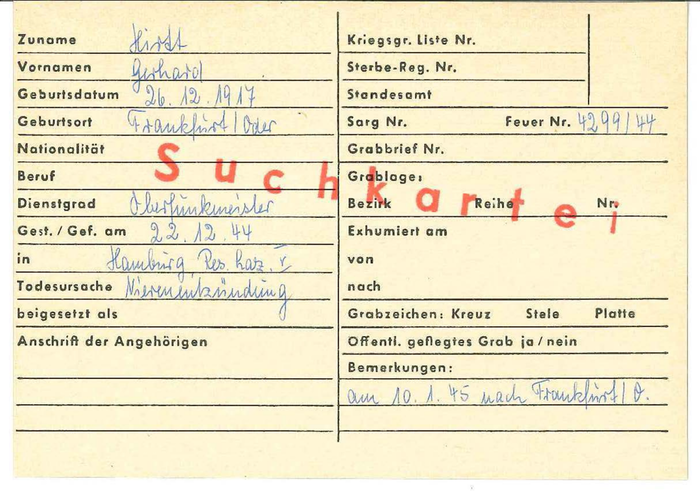 Zuname Hirst
Vornamen Gerhard
Geburtsdatum 26.12.1917
Geburtsort Frankfurt/Oder
Nationalität
Beruf
Dienstgrad Oberfunkmeister
Gest./Gef. am 22.12.44
in Hamburg, Res. Laz. V
Todesursache Nierenentzündung
beigesetzt als
Anschrift der Angehörigen
Suchkartei
Kriegsgr. Liste Nr.
Sterbe-Reg. Nr.
Standesamt
Sarg Nr. Feuer Nr. 4299/44
Grabbrief Nr.
Grablage:
Bezirk Reihe Nr.
Exhumiert am
von
nach
Grabzeichen: Kreuz Stele Platte
Öffentl. gepflegtes Grab ja/nein
Bemerkungen:
am 10.1.45 nach Frankfurt/O.